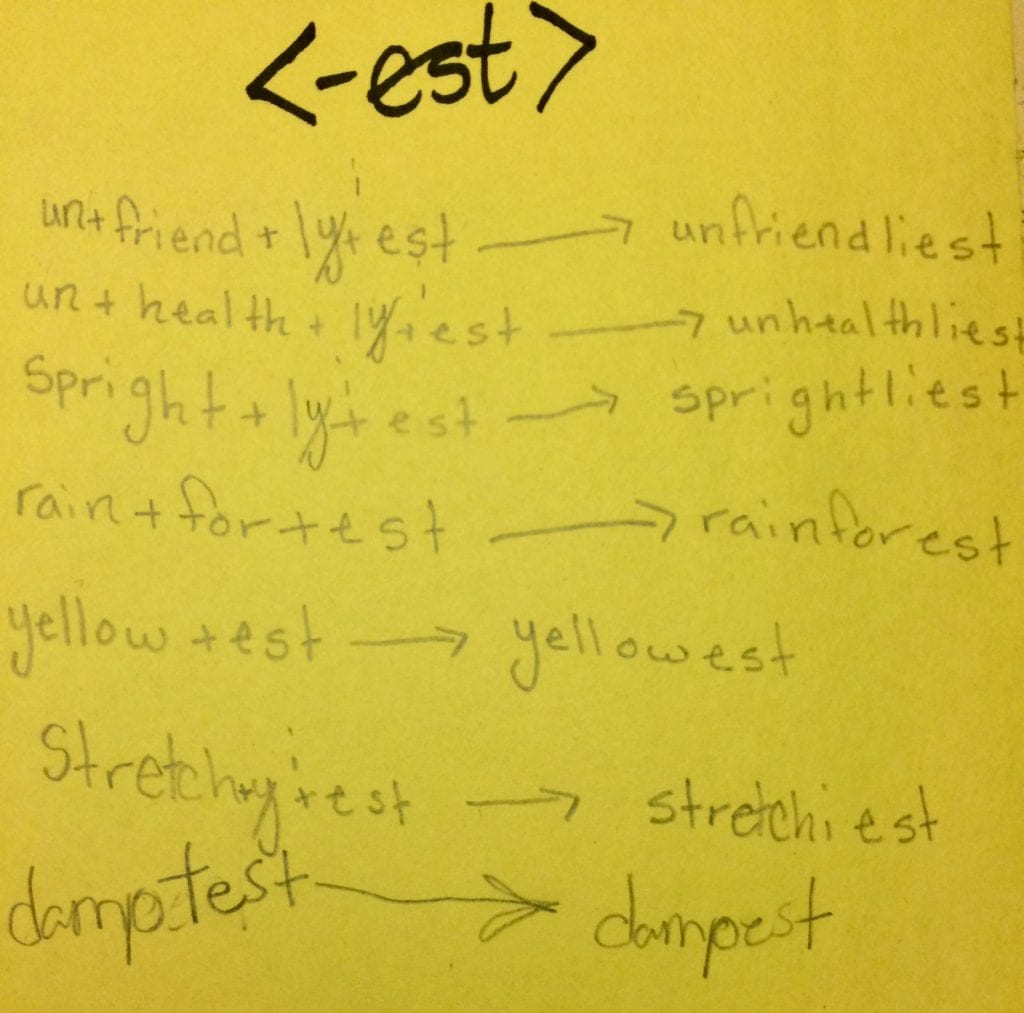 <-est>
un + friend + ly i + est → unfriendliest
un + health + ly i + est → unhealthliest
Spright + ly i + est → sprightliest
rain + for + est → rainforest
yellow + est → yellowest
Stretch + y i + est → stretchiest
damp + est → dampest